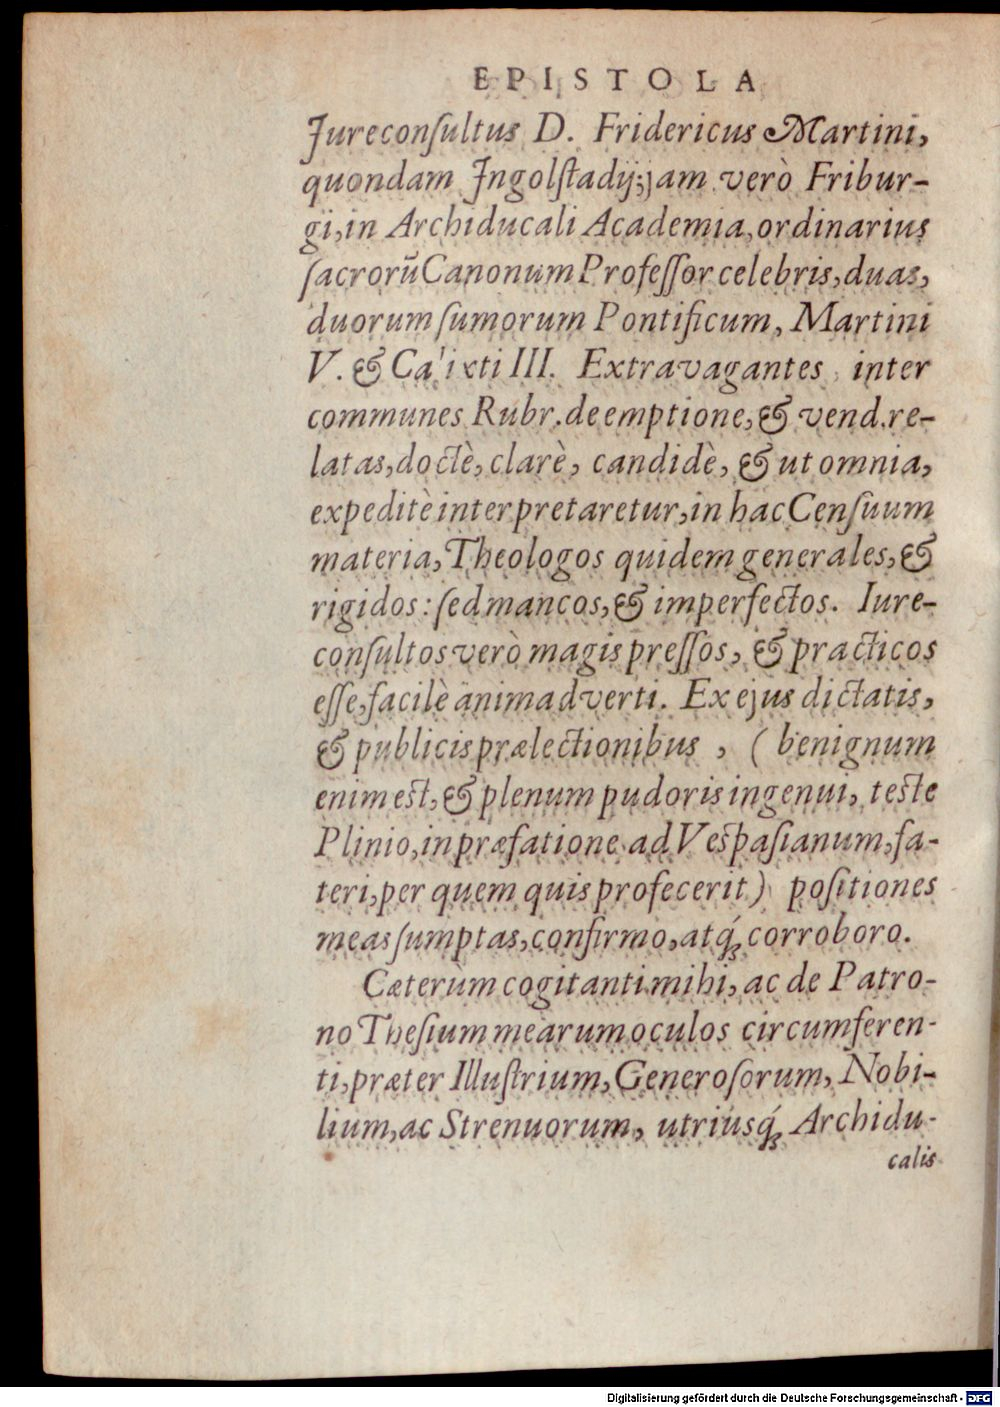 EPISTOLA
Jureconſultus D. Fridericus Martini,
quondam Jngolſtadij; jam verò Fribur-
gi, in Archiducali Academia, ordinarius
ſacrorũ Canonum Profeſſor celebris, duas,
duorum ſumorum Pontificum, Martini
V. & Calixti III. Extravagantes inter
communes Rubr. de emptione, & vend. re-
latas, doctè, clarè, candidè, & ut omnia,
expeditè interpretaretur, in hac Cenſuum
materia, Theologos quidem generales, &
rigidos: ſed mancos, & imperfectos. Iure-
conſultos verò magis preſſos, & practicos
eſſe, facilè animadverti. Ex ejus dictatis,
& publicis prælectionibus, (benignum
enim est, & plenum pudoris ingenui, teste
Plinio, in præfatione ad Vespaſianum, fa-
teri, per quem quis profecerit) poſitiones
meas ſumptas, confirmo, atq́; corroboro.
Cæterùm cogitanti mihi, ac de Patro-
no Theſium mearum oculos circumferen-
ti, præter Illuſtrium, Generoſorum, Nobi-
lium, ac Strenuorum, utriusq́; Archidu-
calis
Digitalisierung gefördert durch die Deutsche Forschungsgemeinschaft - DFG